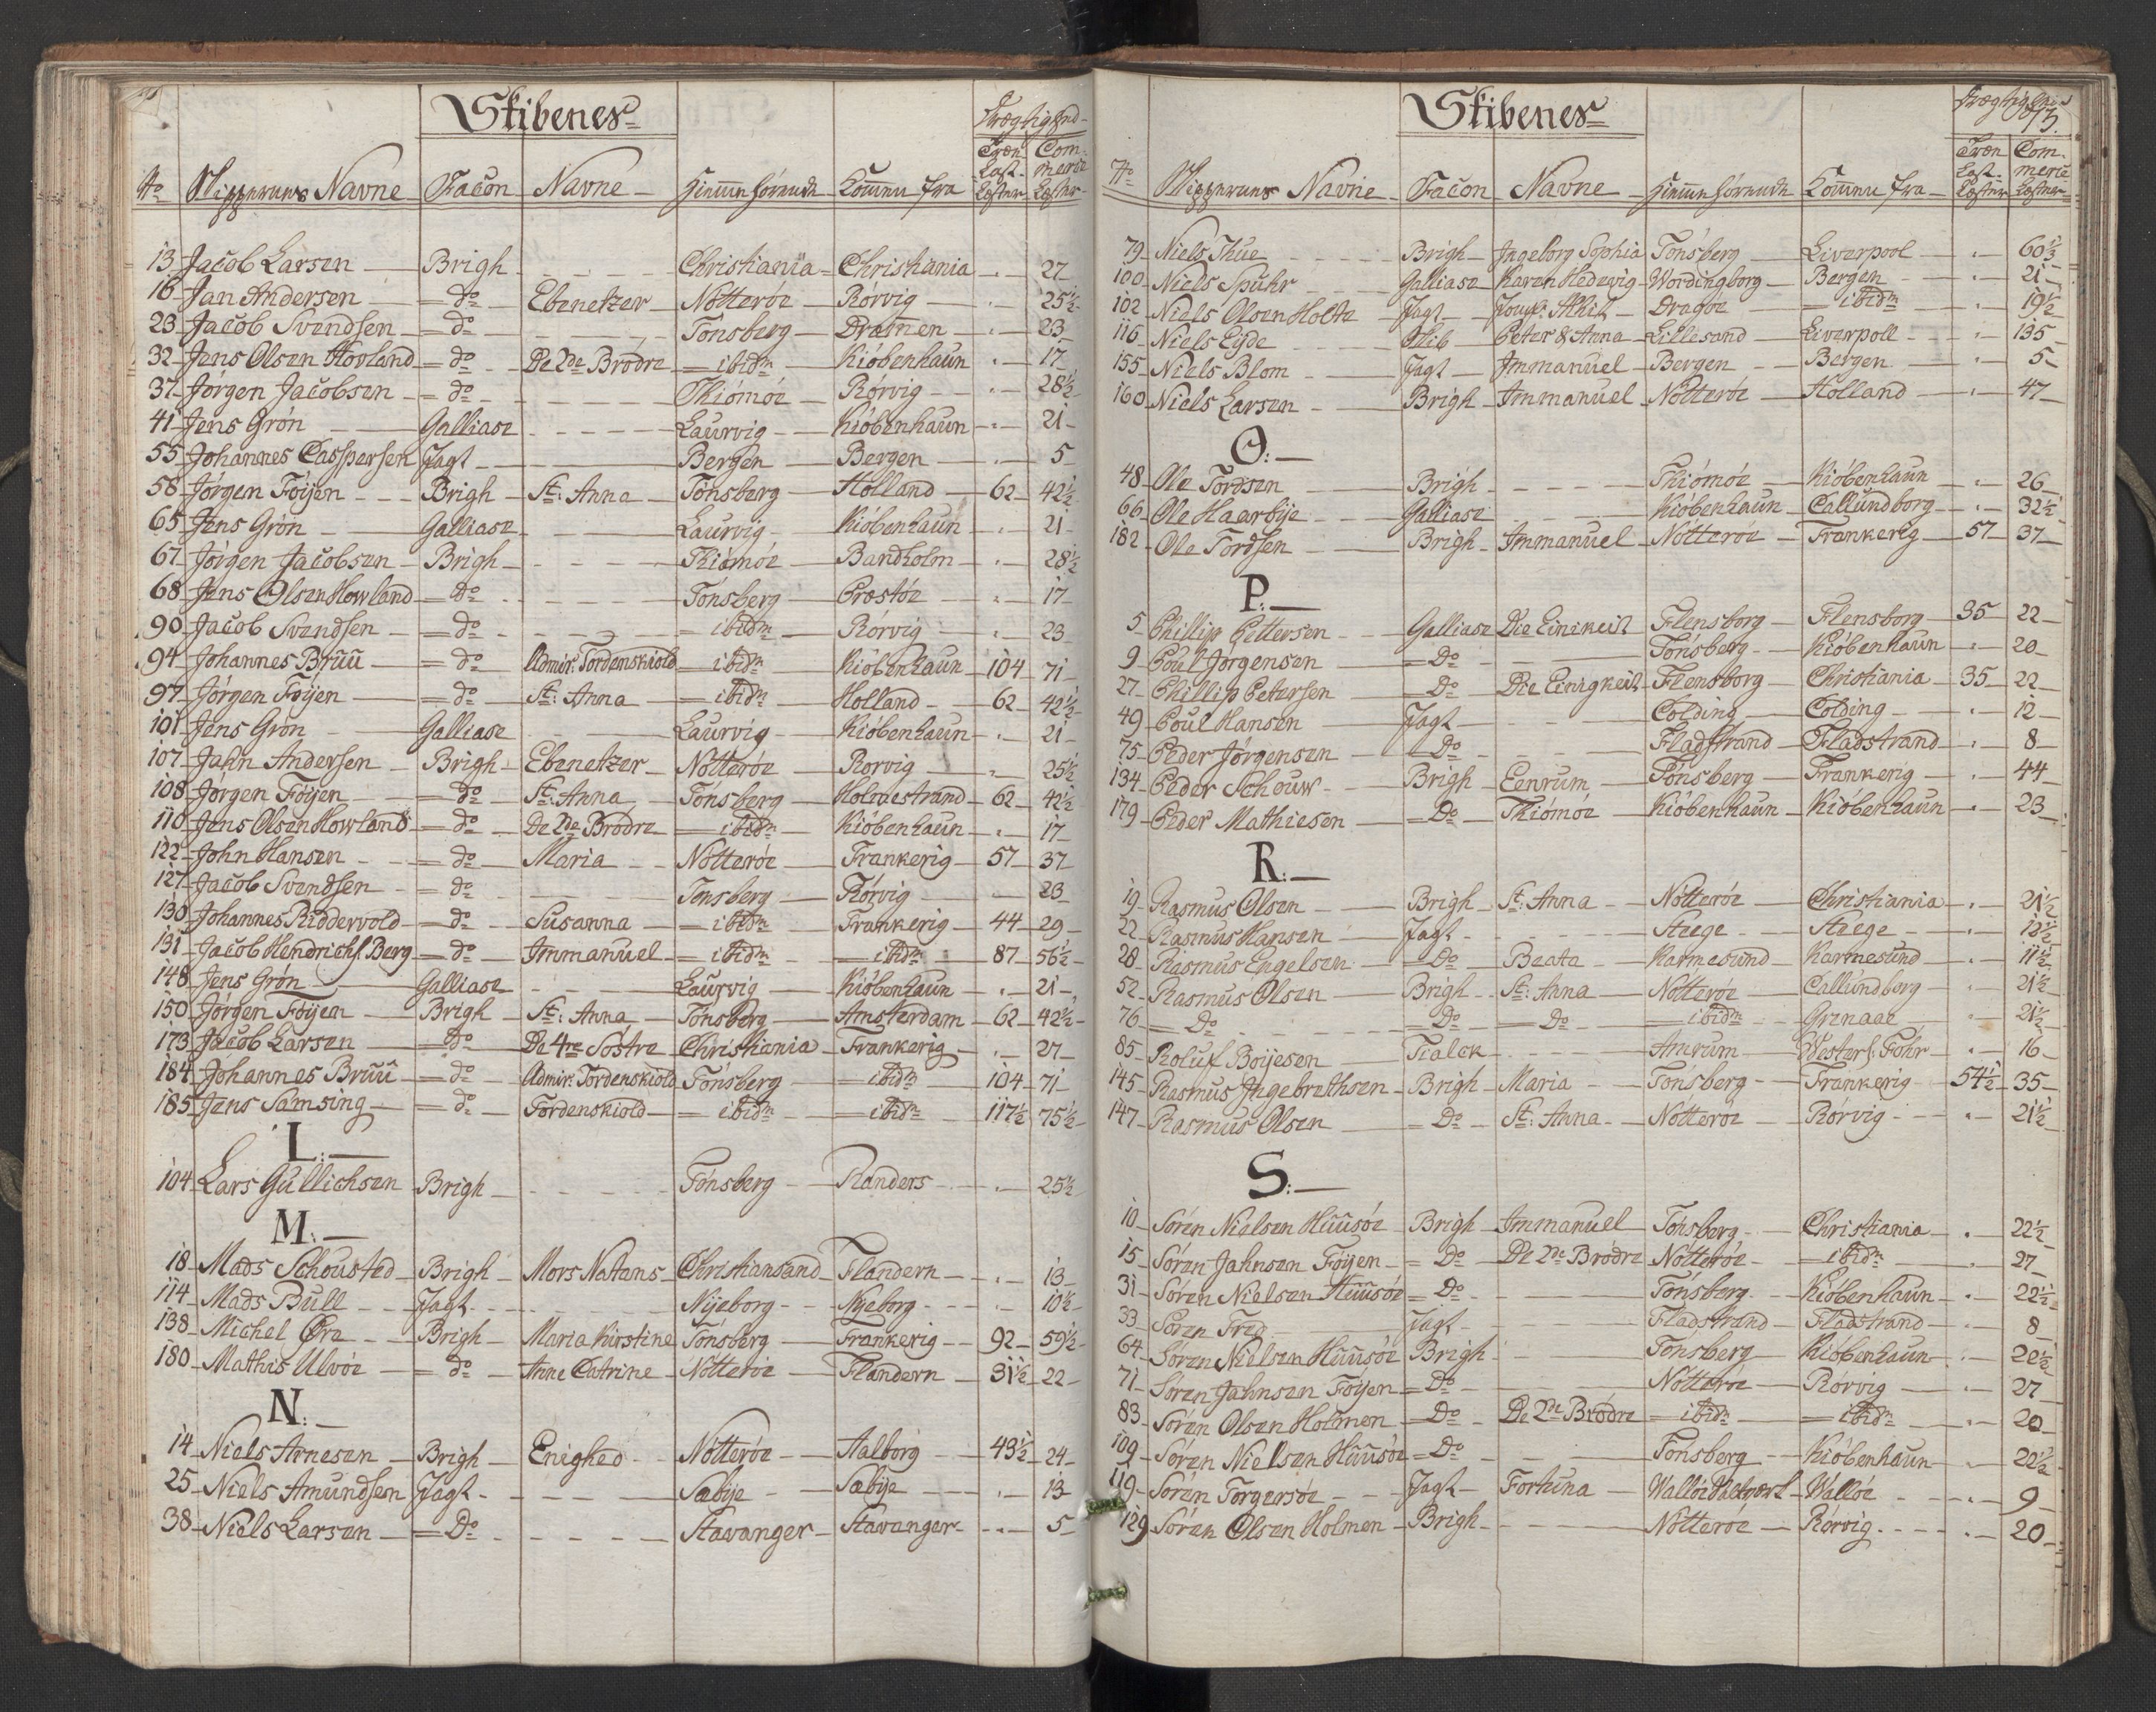 Skibenes
Drægtighed
No Skippernes Navne Facon Navne Hiemmehørende Komme fra Træn Last Læster Com. merce Læster
13 Jacob Larsen Brigh Christiania Christiania 27
16 Jan Andersen do Ebenetzer Nøtterøe Rørvig 25½
23 Jacob Svendsen do Tønsberg Dramen 23
32 Jens Olsen Hovland do De 2de Brødre ibidm Kiøbenhaun 17
37 Jørgen Jacobsen do Thiømøe Rørvig 28½
41 Jens Grøn Galliase Laurvig Kiøbenhaun 21
55 Johannes Caspersen Jagt Bergen Bergen 5
58 Jørgen Føijen Brigh St: Anna Tønsberg Holland 62 42½
65 Jens Grøn Galliase Laurvig Kiøbenhaun 21
67 Jørgen Jacobsen Brigh Thiømøe Bandholm 28½
68 Jens Olsen Howland do Tønsberg Præstøe 17
90 Jacob Svendsen do ibidm Rørvig 23
94 Johannes Bruu do Admir: Tordenskiold ibidm Kiøbenhaun 104 71
97 Jørgen Føijen do St: Anna ibidm Holland 62 42½
101 Jens Grøn Galliase Laurvig Kiøbenhaun 21
107 Jahn Andersen Brigh Ebenetzer Nøtterøe Rørvig 25½
108 Jørgen Føijen do St: Anna Tønsberg Holmestrand 62 42½
110 Jens Olsen Howland do De 2de Brødre ibidm Kiøbenhaun 17
122 John Hansen do Maria Nøtterøe Frankerig 57 37
127 Jacob Svendsen do Tønsberg Rørvig 23
130 Johannes Riddervold do Susanna ibidm Frankerig 44 29
131 Jacob Hendrichs. Berg do Immanuel ibidm ibidm 87 56½
148 Jens Grøn Galliase Laurvig Kiøbenhaun 21
150 Jørgen Føijen Brigh St: Anna Tønsberg Amsterdam 62 42½
173 Jacob Larsen do De 4re Søstre Christiania Frankerig 27
184 Johannes Bruu do Admir: Tordenskiold Tønsberg ibidm 104 71
185 Jens Samsing do Tordenskiold ibidm ibidm 117½ 75½
L:
104 Lars Gullichsen Brigh Tønsberg Randers 25½
M:
18 Mads Schousted Brigh Mors Natans Christiansand Flandern 13
114 Mads Bull Jagt Nijeborg Nyeborg 10½
138 Michel Øre Brigh Maria Kirstine Tønsberg Frankerig 92 59½
180 Mathis Ulvøe do Anne Catrine Nøtterøe Flandern 31½ 22
N:
14 Niels Arnesen Brigh Enighed Nøtterøe Aalborg 43½ 24
25 Niels Amundsen Jagt Sæbije Sæbije 13
38 Niels Larsen Do Stavanger Stavanger 5
Skibenes
Drægtighed
No Skippernes Navne Facon Navne Hiemmehørende Komme fra Træn Last Læster Com. merce Læster
79 Niels Thue Brigh Ingeborg Sophia Tønsberg Liverpool 60½
100 Niels Spuhr Galliase Karen Hedevig Wordingborg Bergen 21
102 Niels Olsen Holte Jagt Dragøe ibidm 19½
116 Niels Eyde Skib Peter & Anna Lillesand Liverpoll 135
155 Niels Blom Jagt Immanuel Bergen Bergen 5
160 Niels Larsen Brigh Immanuel Nøtterøe Holland 47
O:
48 Ole Tordsen Brigh Thiømøe Kiøbenhaun 26
66 Ole Haarbije Galliase Kiøbenhaun Callundborg 32½
182 Ole Tordsen Brigh Immanuel Nøtterøe Frankerig 57 37
P:
5 Phillip Pettersen Galliase Die Einekeit Flensborg Flensborg 35 22
9 Poul Jørgensen Do Tønsberg Kiøbenhaun 20
27 Phillip Petersen Do Die Einigkeit Flensborg Christiania 35 22
49 Poul Hansen Jagt Colding Colding 12
75 Peder Jørgensen Do Fladstrand Fladstrand 8
134 Peder Schouw Brigh Eenrum Tønsberg Frankerig 44
179 Peder Mathiesen Do Thiømøe Kiøbenhaun Kiøbenhaun 23
R:
19 Rasmus Olsen Brigh St: Anna Nøtterøe Christiania 21½
22 Rasmus Hansen Jagt Stege Stege 12½
28 Rasmus Engelsen Do Beata Karmesund Karmesund 11½
52 Rasmus Olsen Brigh St: Anna Nøtterøe Callundborg 21½
76 Do Do Do ibidm Grenaae 21½
85 Roluf Boijesen Tialck Amrum Westerl: Føhr 16
145 Rasmus Ingebrethsen Brigh Maria Tønsberg Frankerig 54½ 35
147 Rasmus Olsen Do St: Anna Nøtterøe Rørvig 21½
S:
10 Søren Nielsen Huusøe Brigh Immanuel Tønsberg Christiania 22½
15 Søren Jahnsen Føijen Do De 2de Brødre Nøtterøe ibidm 27
31 Søren Nielsen Huusøe Do Tønsberg Kiøbenhaun 22½
33 Søren Fred Jagt Fladstrand Fladstrand 8
64 Søren Nielsen Huusøe Brigh Tønsberg Kiøbenhaun 22½
71 Søren Jahnsen Føijen Do Nøtterøe Rørvig 27
83 Søren Olsen Holmen Do De 2de Brødre ibidm ibidm 20
109 Søren Nielsen Huusøe Do Tønsberg Kiøbenhaun 22½
119 Søren Torgersøe Jagt Fortuna Walløe Walløe 9
129 Søren Olsen Holmen Brigh Nøtterøe Rørvig 20